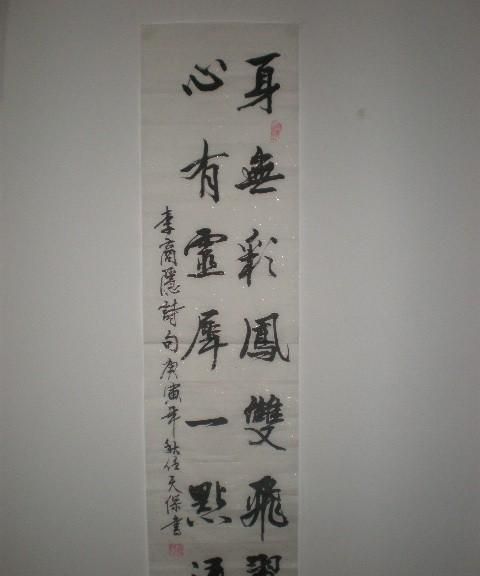 身無彩鳳雙飛翼
心有靈犀一點通
李商隱詩句庚寅年秋任天保書